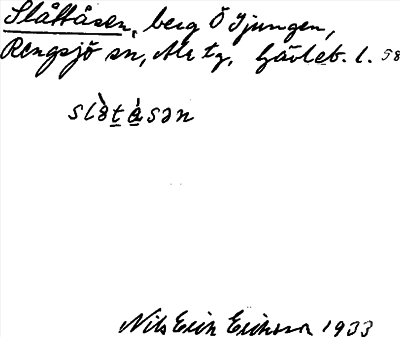 Slåttåsen, berg Ö Ljungen,
Rengsjö sn, Ala tg, Gävleb. l. 58
slòtásən
Nils Erik Eriksson 1933